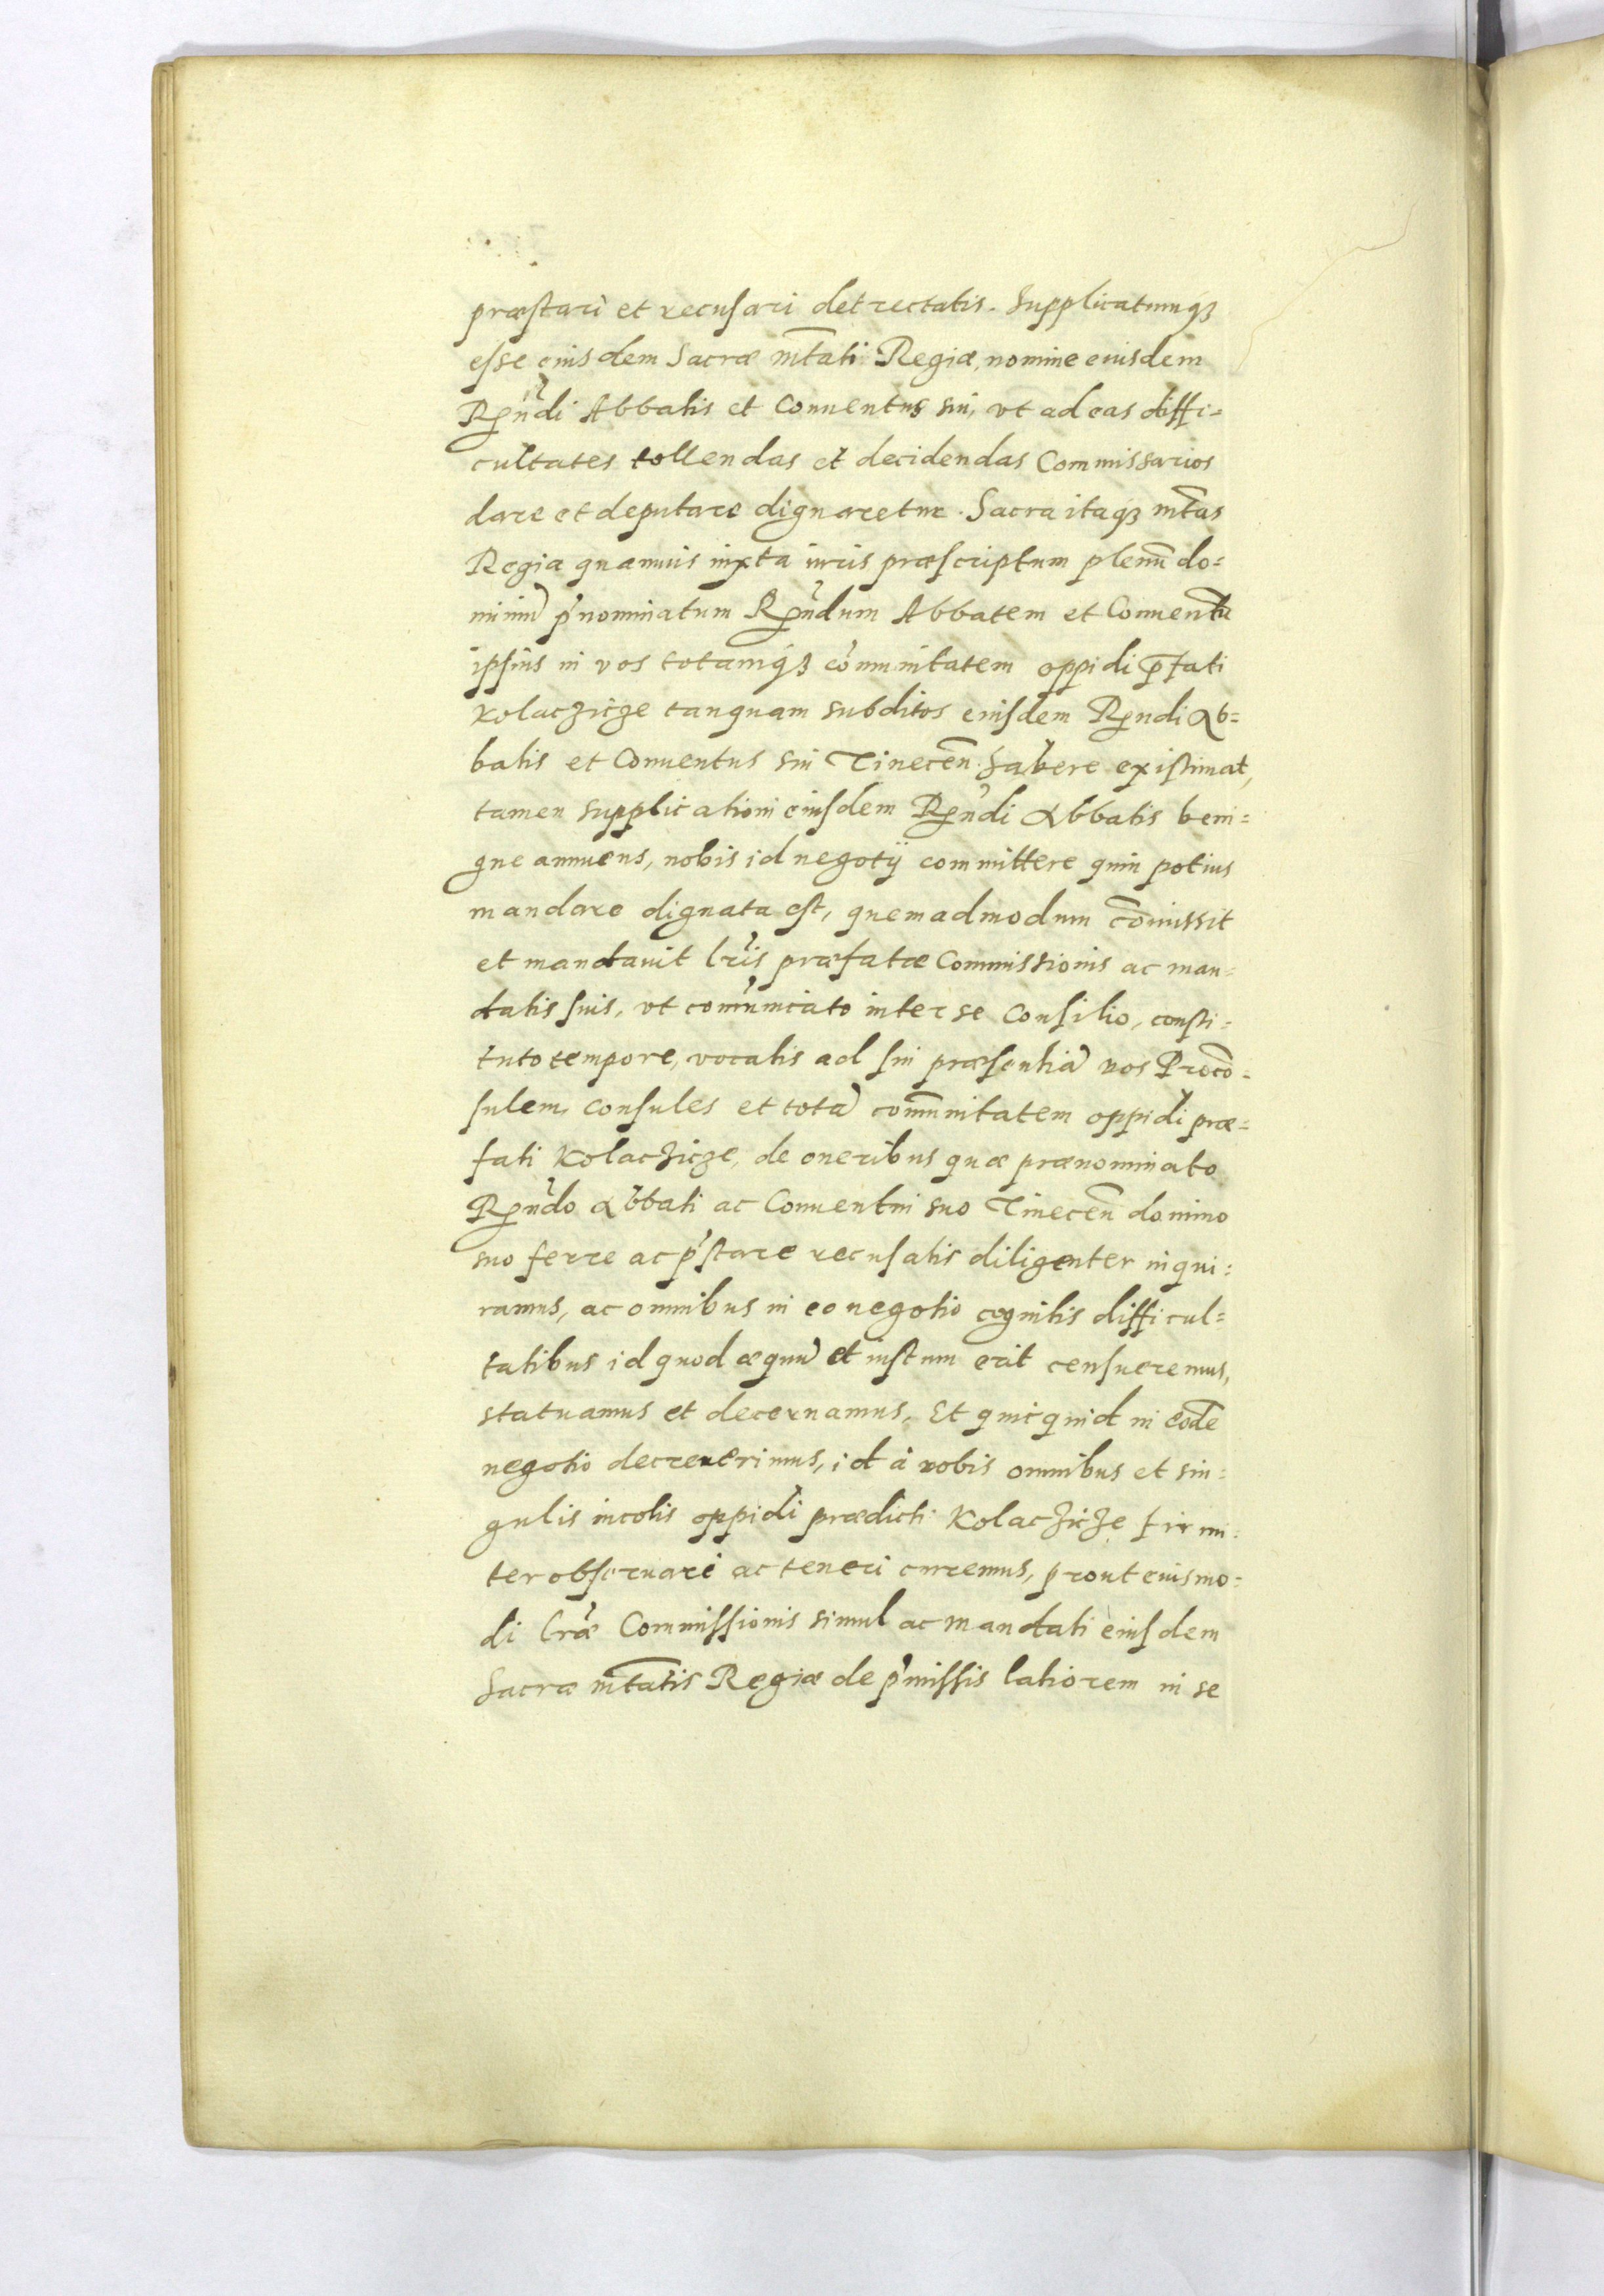 præstari et recusari detrectatis. Supplicatumq₃
esse eiusdem Sacræ Mt̃ati Regiæ, nomine eiusdem
Rṇ̃di Abbatis et Conuentus sui, vt ad eas diffi=
cultates tollendas et decidendas Commissarios
dare et deputare dignaretur. Sacra itaq₃ mt̃as
Regia quamuis iuxta iuris præscriptum plenũ do=
miniũ p̃nominatum Rp̃ndum Abbatem et Conuentũ
ipsius in vos totamq₃ cõmunitatem oppidi p̃fati
Kolaczicze tanquam subditos eiusdem Rp̃ndi Ab=
batis et Conuentus sui Tinecẽn habere existimat,
tamen supplicationi eiusdem Rp̃ndi Abbatis beni=
gne annuens, nobis id negotij committere quin potius
mandare dignata est, quemadmodum com̃issit
et mandauit lr̃is præfatæ Commissionis ac man=
datis suis, vt com̃unicato inter se Consilio, consti=
tuto tempore, vocatis ad sui præsentiã vos Procõ=
sulem, consules et totã com̃unitatem oppidi præ=
fati Kolaczicze, de oneribus quæ prænominato
Rp̃ndo Abbati ac Conuentui suo Tinecẽn domino
suo ferre ac p̃stare recusatis diligenter inqui=
ramus, ac omnibus in eo negotio cognitis difficul=
tatibus id quod æquũ et iustum erit censueremus,
statuamus et decernamus, Et quicquid in eodẽ
negotio decreuerimus, id à vobis omnibus et sin=
gulis incolis oppidi prædicti Kolaczicze firmi=
ter obseruari ac teneri curemus, prout eiusmo=
di lr̃æ Commissionis simul ac mandati eiusdem
Sacræ mt̃atis Regiæ de p̃missis latiorem in se